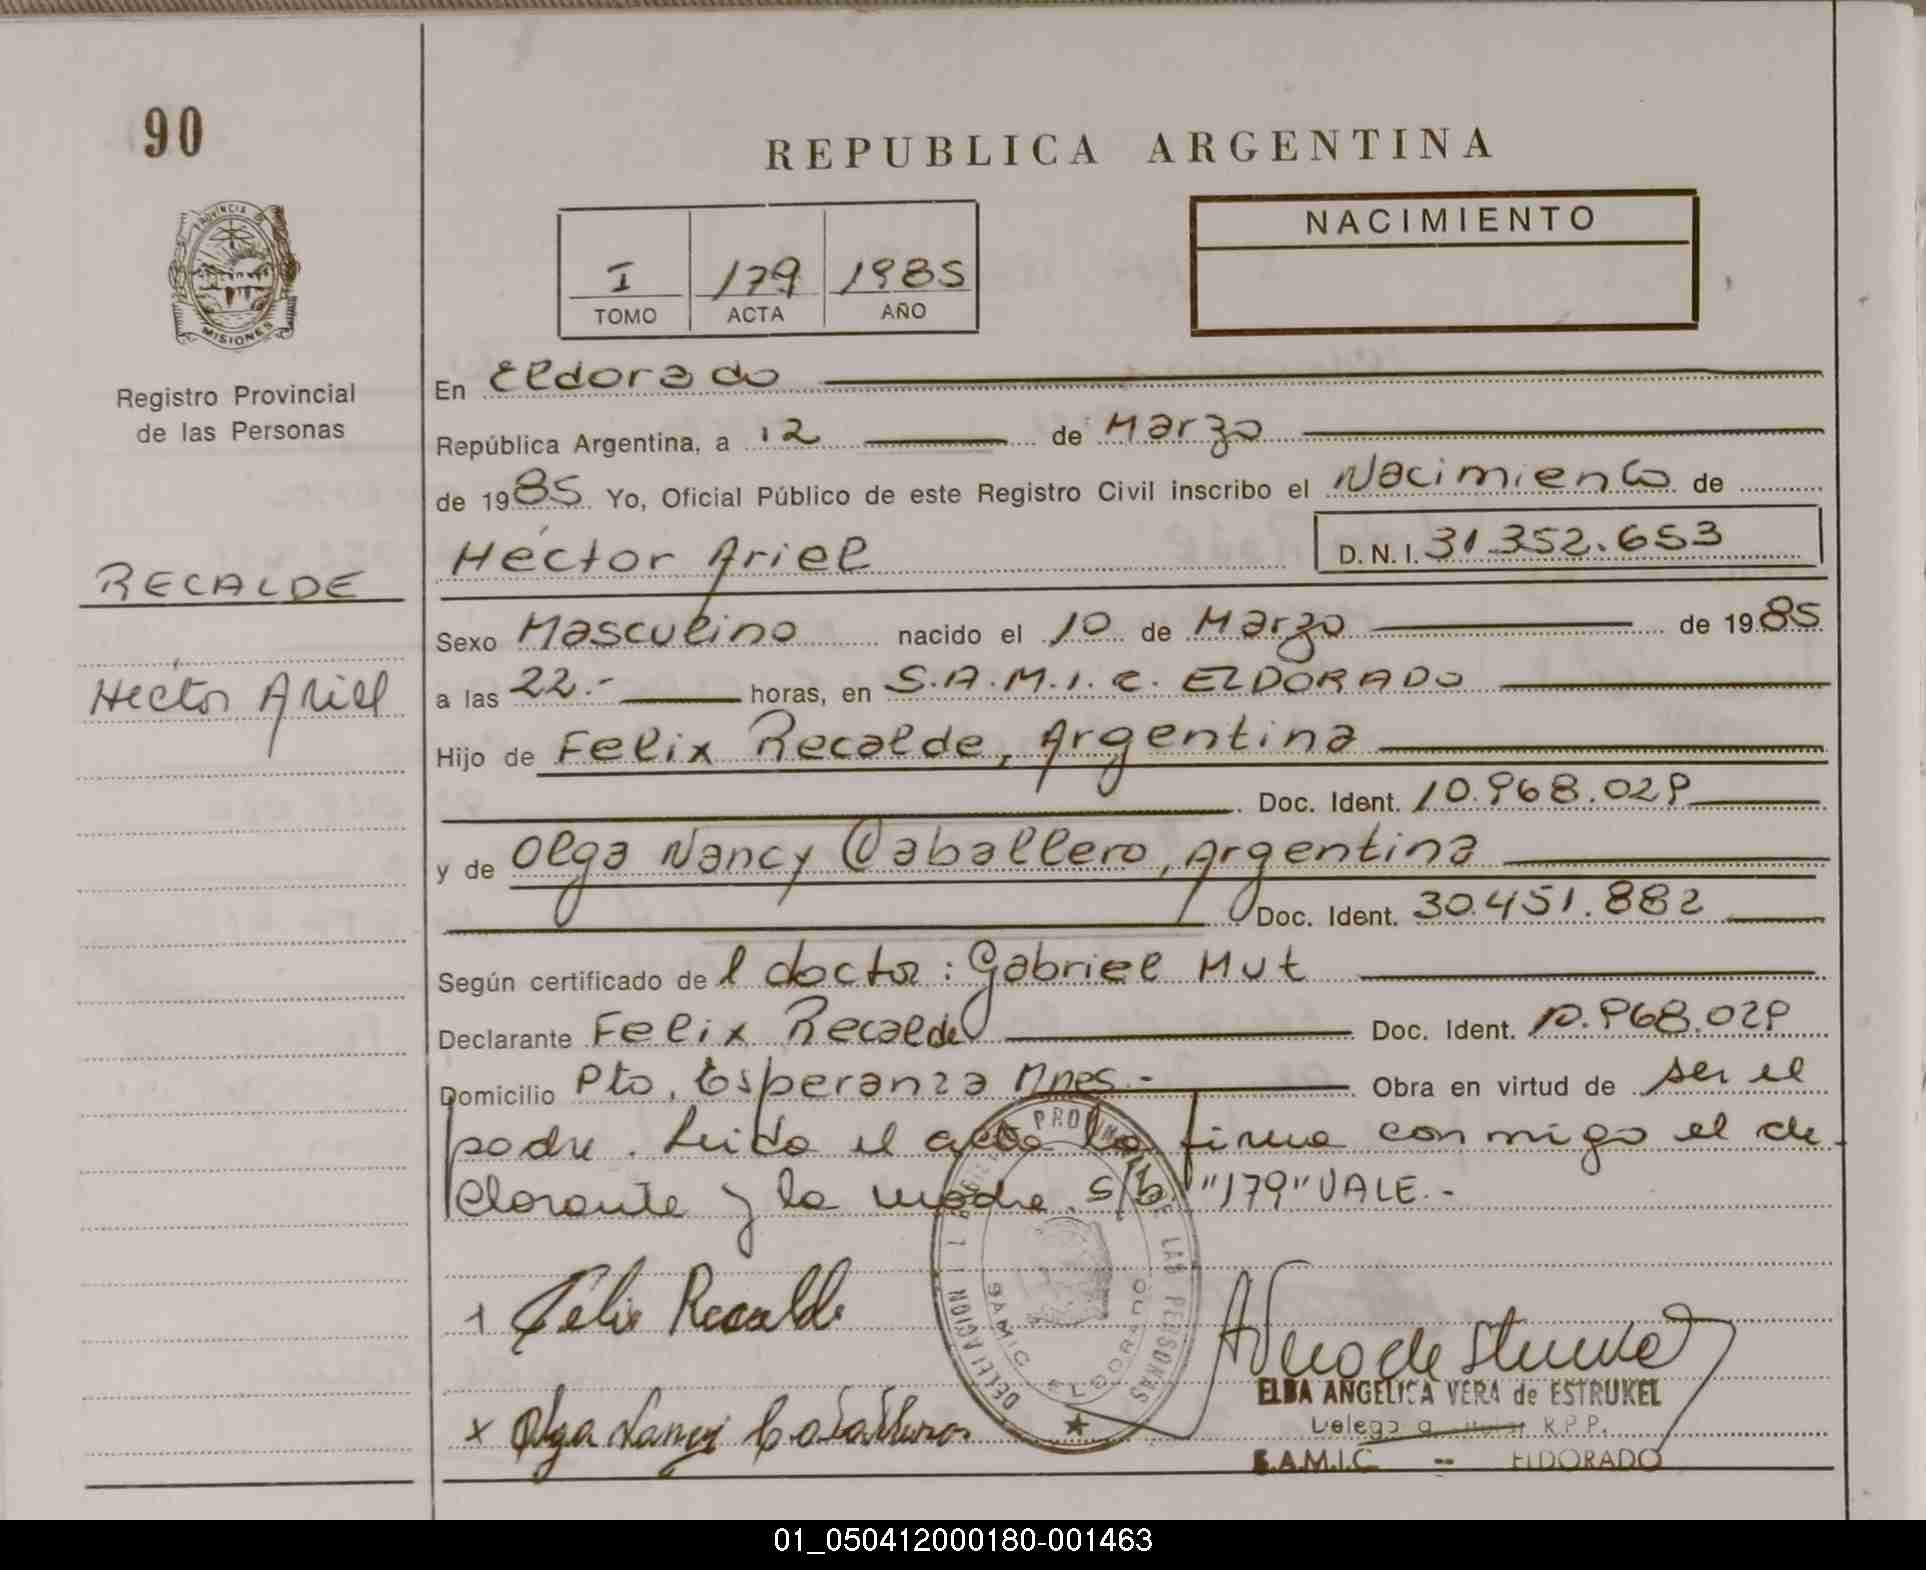 90
REPUBLICA ARGENTINA
NACIMIENTO
PROVINCIA D
MISIONES
I 179 1985
TOMO ACTA AÑO
Registro Provincial
de las Personas
RECALDE
Hector Ariel
En Eldorado
República Argentina, a 12 de Marzo
de 1985 Yo, Oficial Público de este Registro Civil inscribo el Nacimiento de
Héctor Ariel D. N. I. 31.352.653
Sexo Masculino nacido el 10 de Marzo de 1985
a las 22.- horas, en S.A.M.I.C. ELDORADO
Hijo de Felix Recalde, Argentina
Doc. Ident. 10.968.029
y de Olga Nancy Caballero, Argentina
Doc. Ident. 30.451.882
Según certificado de l doctor: Gabriel Mut
Declarante Felix Recalde Doc. Ident. 10.968.029
Domicilio Pto. Esperanza Mnes.- Obra en virtud de ser el
padre. Leida el acta la firma conmigo el de-
clarante y la madre. S/b "179" VALE.-
DELEGACION
LAS PERSONAS
SAMIC ELDORADO
Felix Recalde
x Olga Nancy Caballero
ELBA ANGELICA VERA de ESTRUKEL
R.P.P.
S.A.M.I.C. -- ELDORADO
01_050412000180-001463